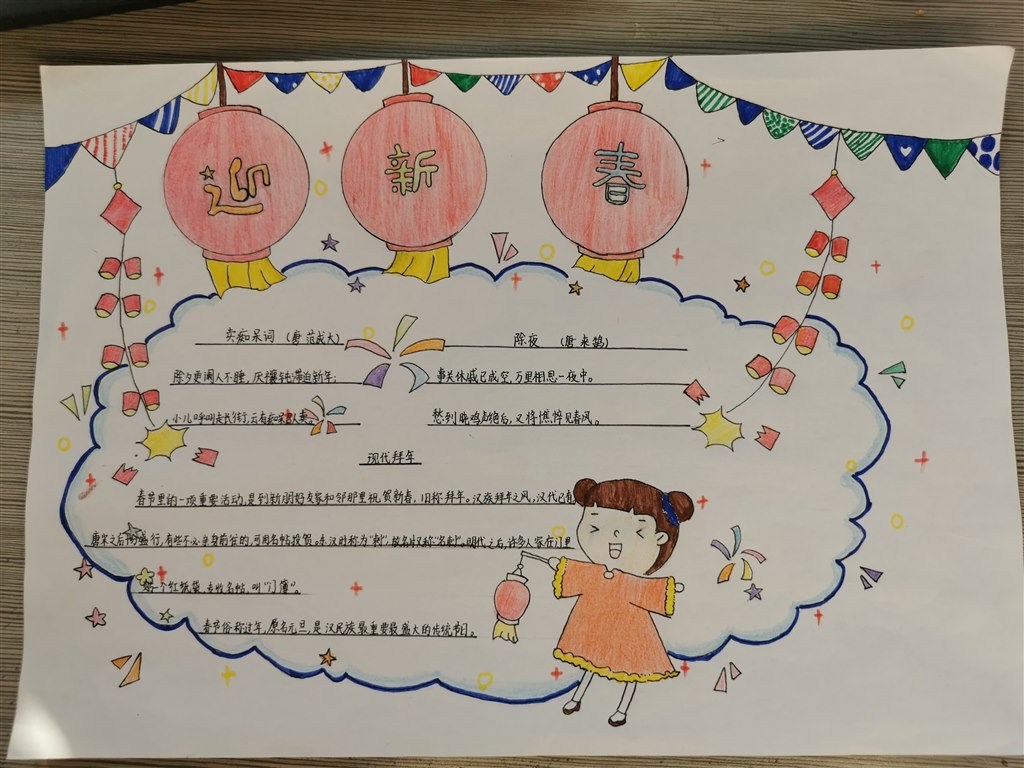 迎新春
卖痴呆词 (唐 范成大)
除夕更阑人不睡，厌禳钝滞迫新年；
小儿呼叫走长街，云有痴呆召人卖。
除夜 (唐 来鹄)
事关休戚已成空，万里相思一夜中。
愁到晓鸡声绝后，又将憔悴见春风。
现代拜年
春节里的一项重要活动，是到新朋好友家和邻那里祝贺新春，旧称拜年。汉族拜年之风，汉代已有
唐宋之后盛行，有些不必亲身前往的，可用名帖投贺。东汉时称为"刺"，故名片又称"名刺"。明代之后，许多人家在门里
个红纸袋，专收名帖，叫"门簿"。
春节俗称过年，原名元旦，是汉民族最重要最盛大的传统节日。